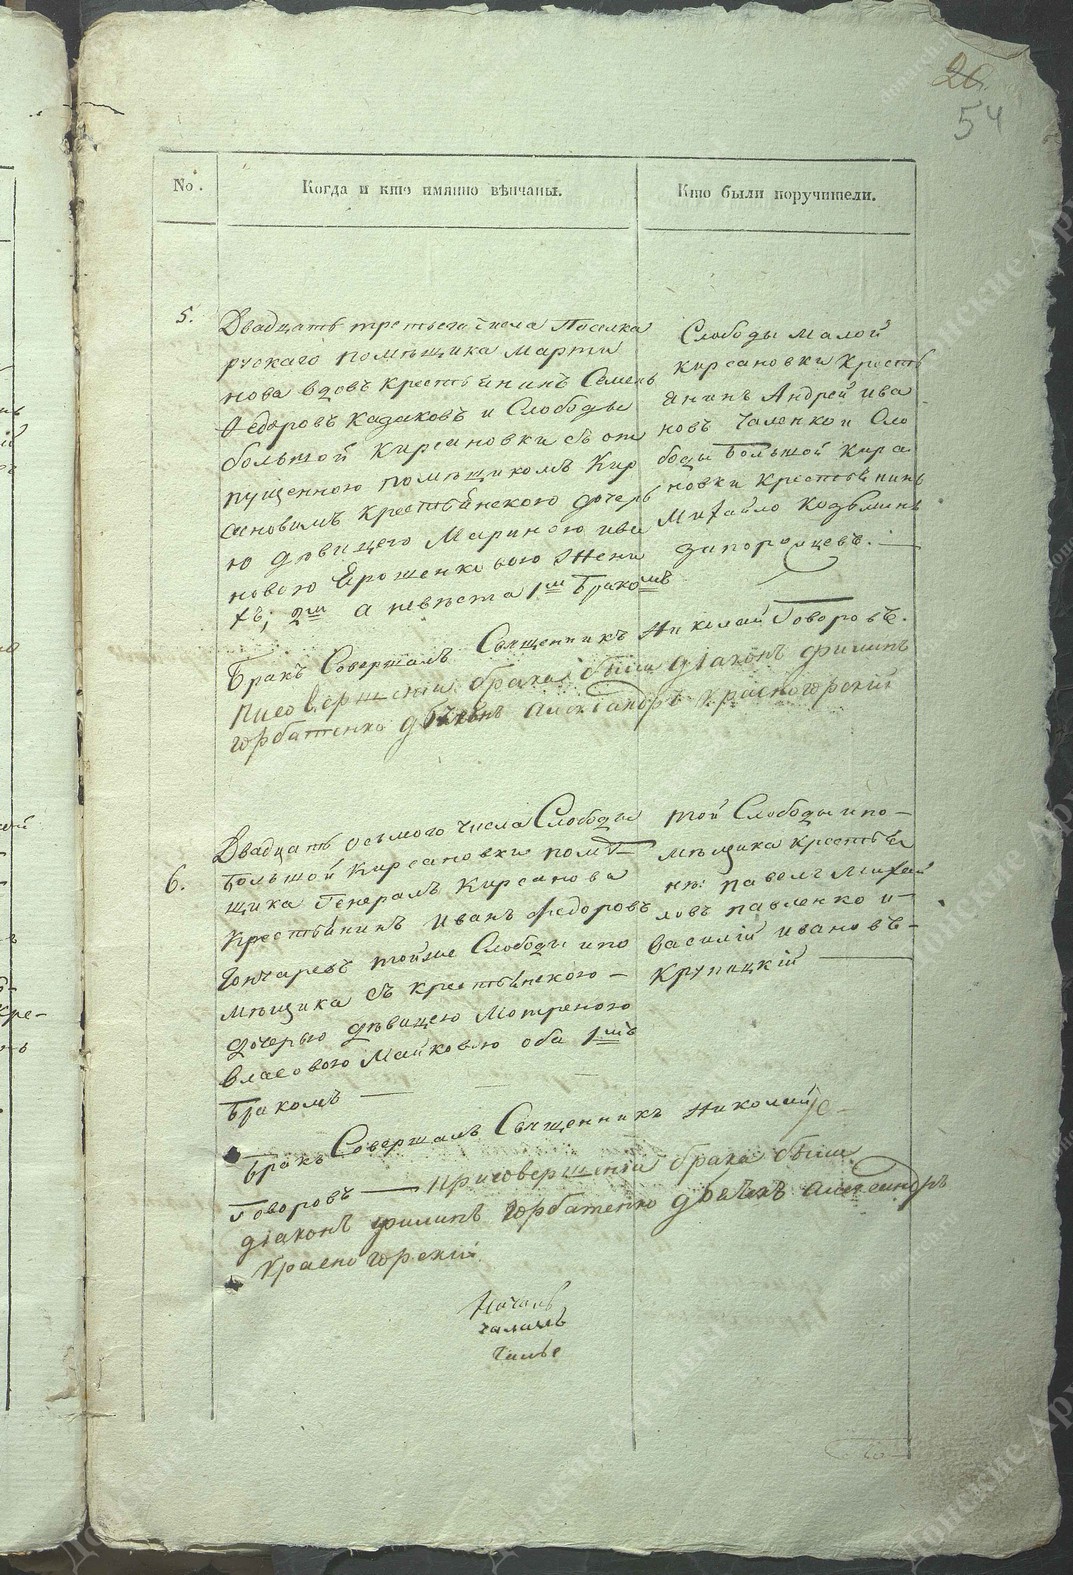 20.
54
No.
Когда и кто имянно вѣнчаны.
Кто были поручители.
5.
Двадцать третьего числа Поселка
рускаго помѣщика Марти
нова вдовъ крестьянинъ Семенъ
Федоровъ Казаковъ и Слободы
большой Кирсановки съ от
пущенною помѣщикомъ Кир
сановымъ крестьянскою дочерь
ю дѣвицею Мариною ива
новою Ерошенковою жени
хъ; 2м а невѣста 1м бракомъ
Слободы Малой
кирсановки Кресть
янинъ Андрей ива
новъ Чаленко и Сло
боды Большой Кирса
новки крестьянинъ
Михайло Козьминъ
запорожцевъ.
Бракъ Совершалъ Священникъ Николай Говоровъ.
присовершении брака были діаконъ филипъ
горбатенко дьячекъ александръ красногорский
6.
Двадцать осьмого числа Слободы
Большой Кирсановки помѣ
щика Генерала Кирсанова
крестьянинъ Иванъ Федоровъ
Гончаревъ тойже Слободы и по
мѣщика съ крестьянскою
дочерью дѣвицею Мотреною
Власовою Майковою оба 1мъ
бракомъ
той Слободы и по-
мѣщика крестьяне
Павелъ Михай
ловъ павленко и-
василій ивановъ-
Крупицкій
Бракъ Совершалъ Священникъ Николай
Говоровъ присовершении брака были
діаконъ филипъ горбатенко дьячекъ александръ
Красногорский